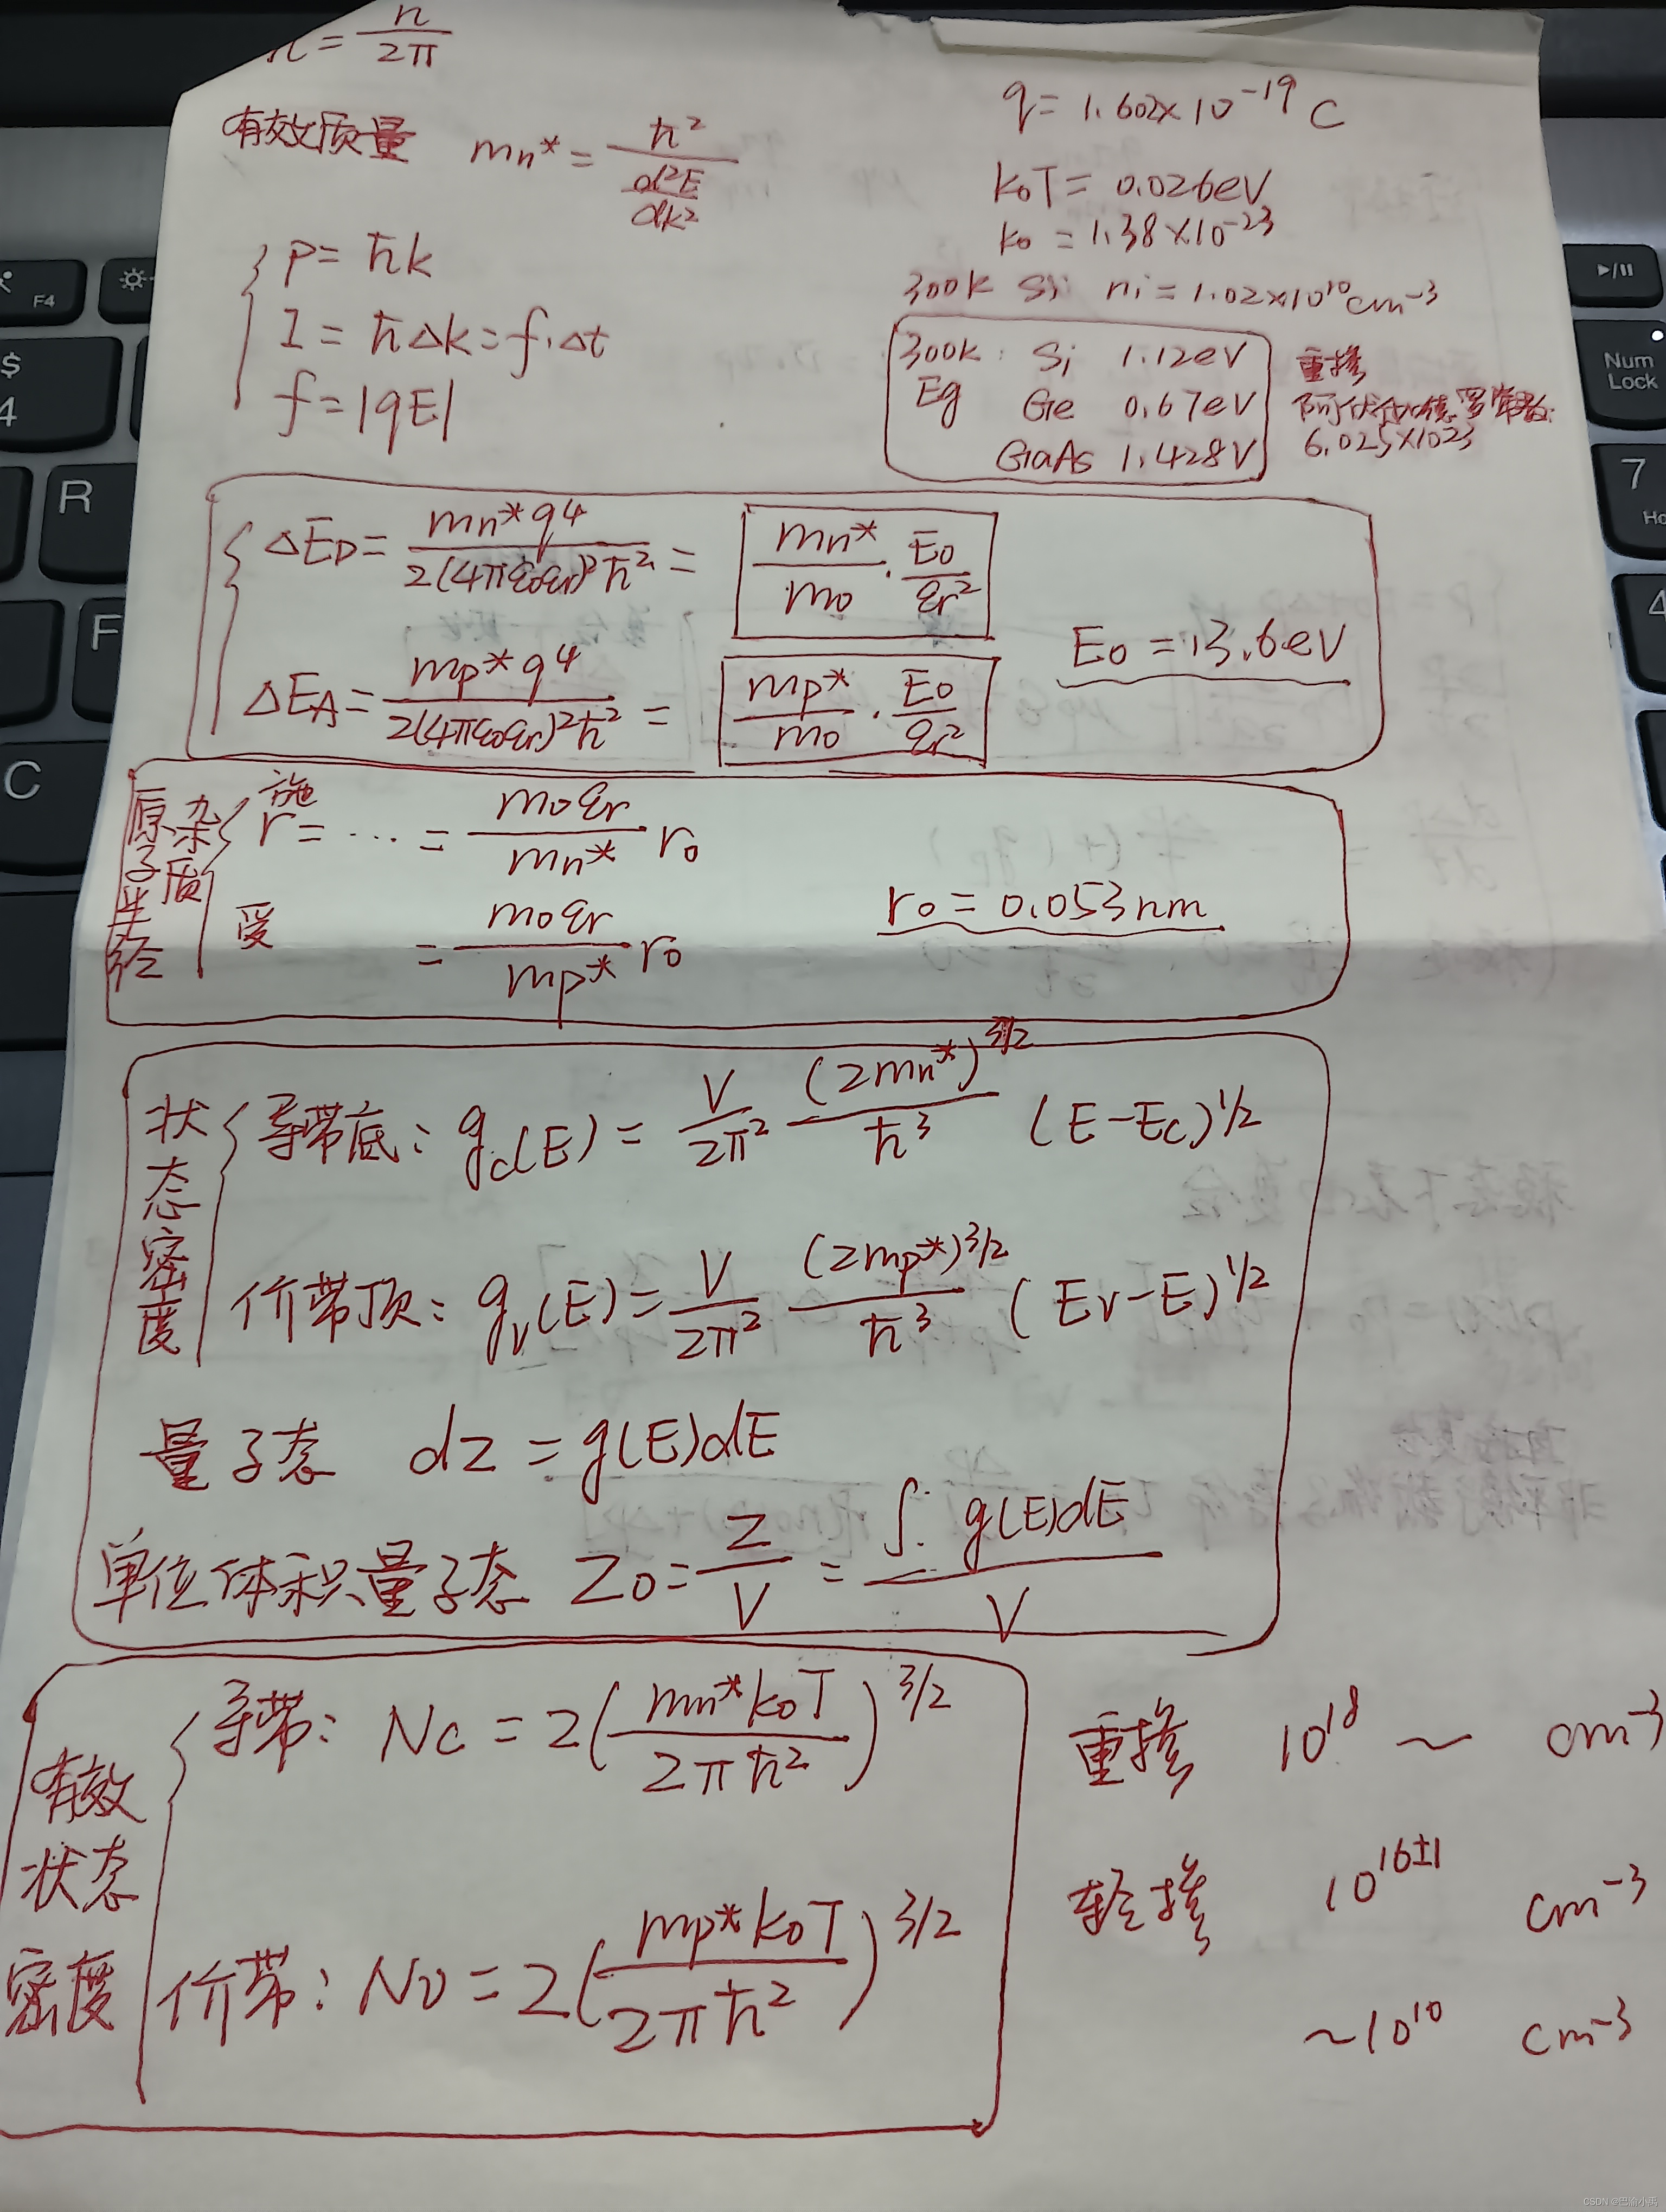 ħ = h/2π
有效质量 mn* = ħ²/(d²E/dk²)
q = 1.602×10⁻¹⁹ C
k₀T = 0.026eV
k₀ = 1.38×10⁻²³
300k Si ni = 1.02×10¹⁰cm⁻³
P = ħk
I = ħΔk = f·Δt
f = |qE|
300k: Si 1.12eV
Eg Ge 0.67eV
GaAs 1.428V
重掺
阿伏伽德罗常数:
6.025×1023
ΔED = mn*q⁴/2(4πε₀εr)²ħ² = mn*/m₀ · E₀/εr²
E₀ = 13.6eV
ΔEA = mp*q⁴/2(4πε₀εr)²ħ² = mp*/m₀ · E₀/εr²
杂质
原子半经
施
r = ··· = m₀εr/mn* r₀
受 = m₀εr/mp* r₀
r₀ = 0.053nm
状态密度
导带底: gc(E) = V/2π² (2mn*)^3/2/ħ³ (E-Ec)^1/2
价带顶: gv(E) = V/2π² (2mp*)^3/2/ħ³ (Ev-E)^1/2
量子态 dz = g(E)dE
单位体积量子态 Z₀ = Z/V = ∫ g(E)dE/V
有效
状态
密度
导带: Nc = 2(mn*k₀T/2πħ²)^3/2
价带: Nv = 2(mp*k₀T/2πħ²)^3/2
重掺 10¹⁸ ~ cm⁻³
轻掺 10^16±1 cm⁻³
~10¹⁰ cm⁻³
F4
$
4
R
F
C
Num
Lock
7
4
CSDN @巴渝小禹